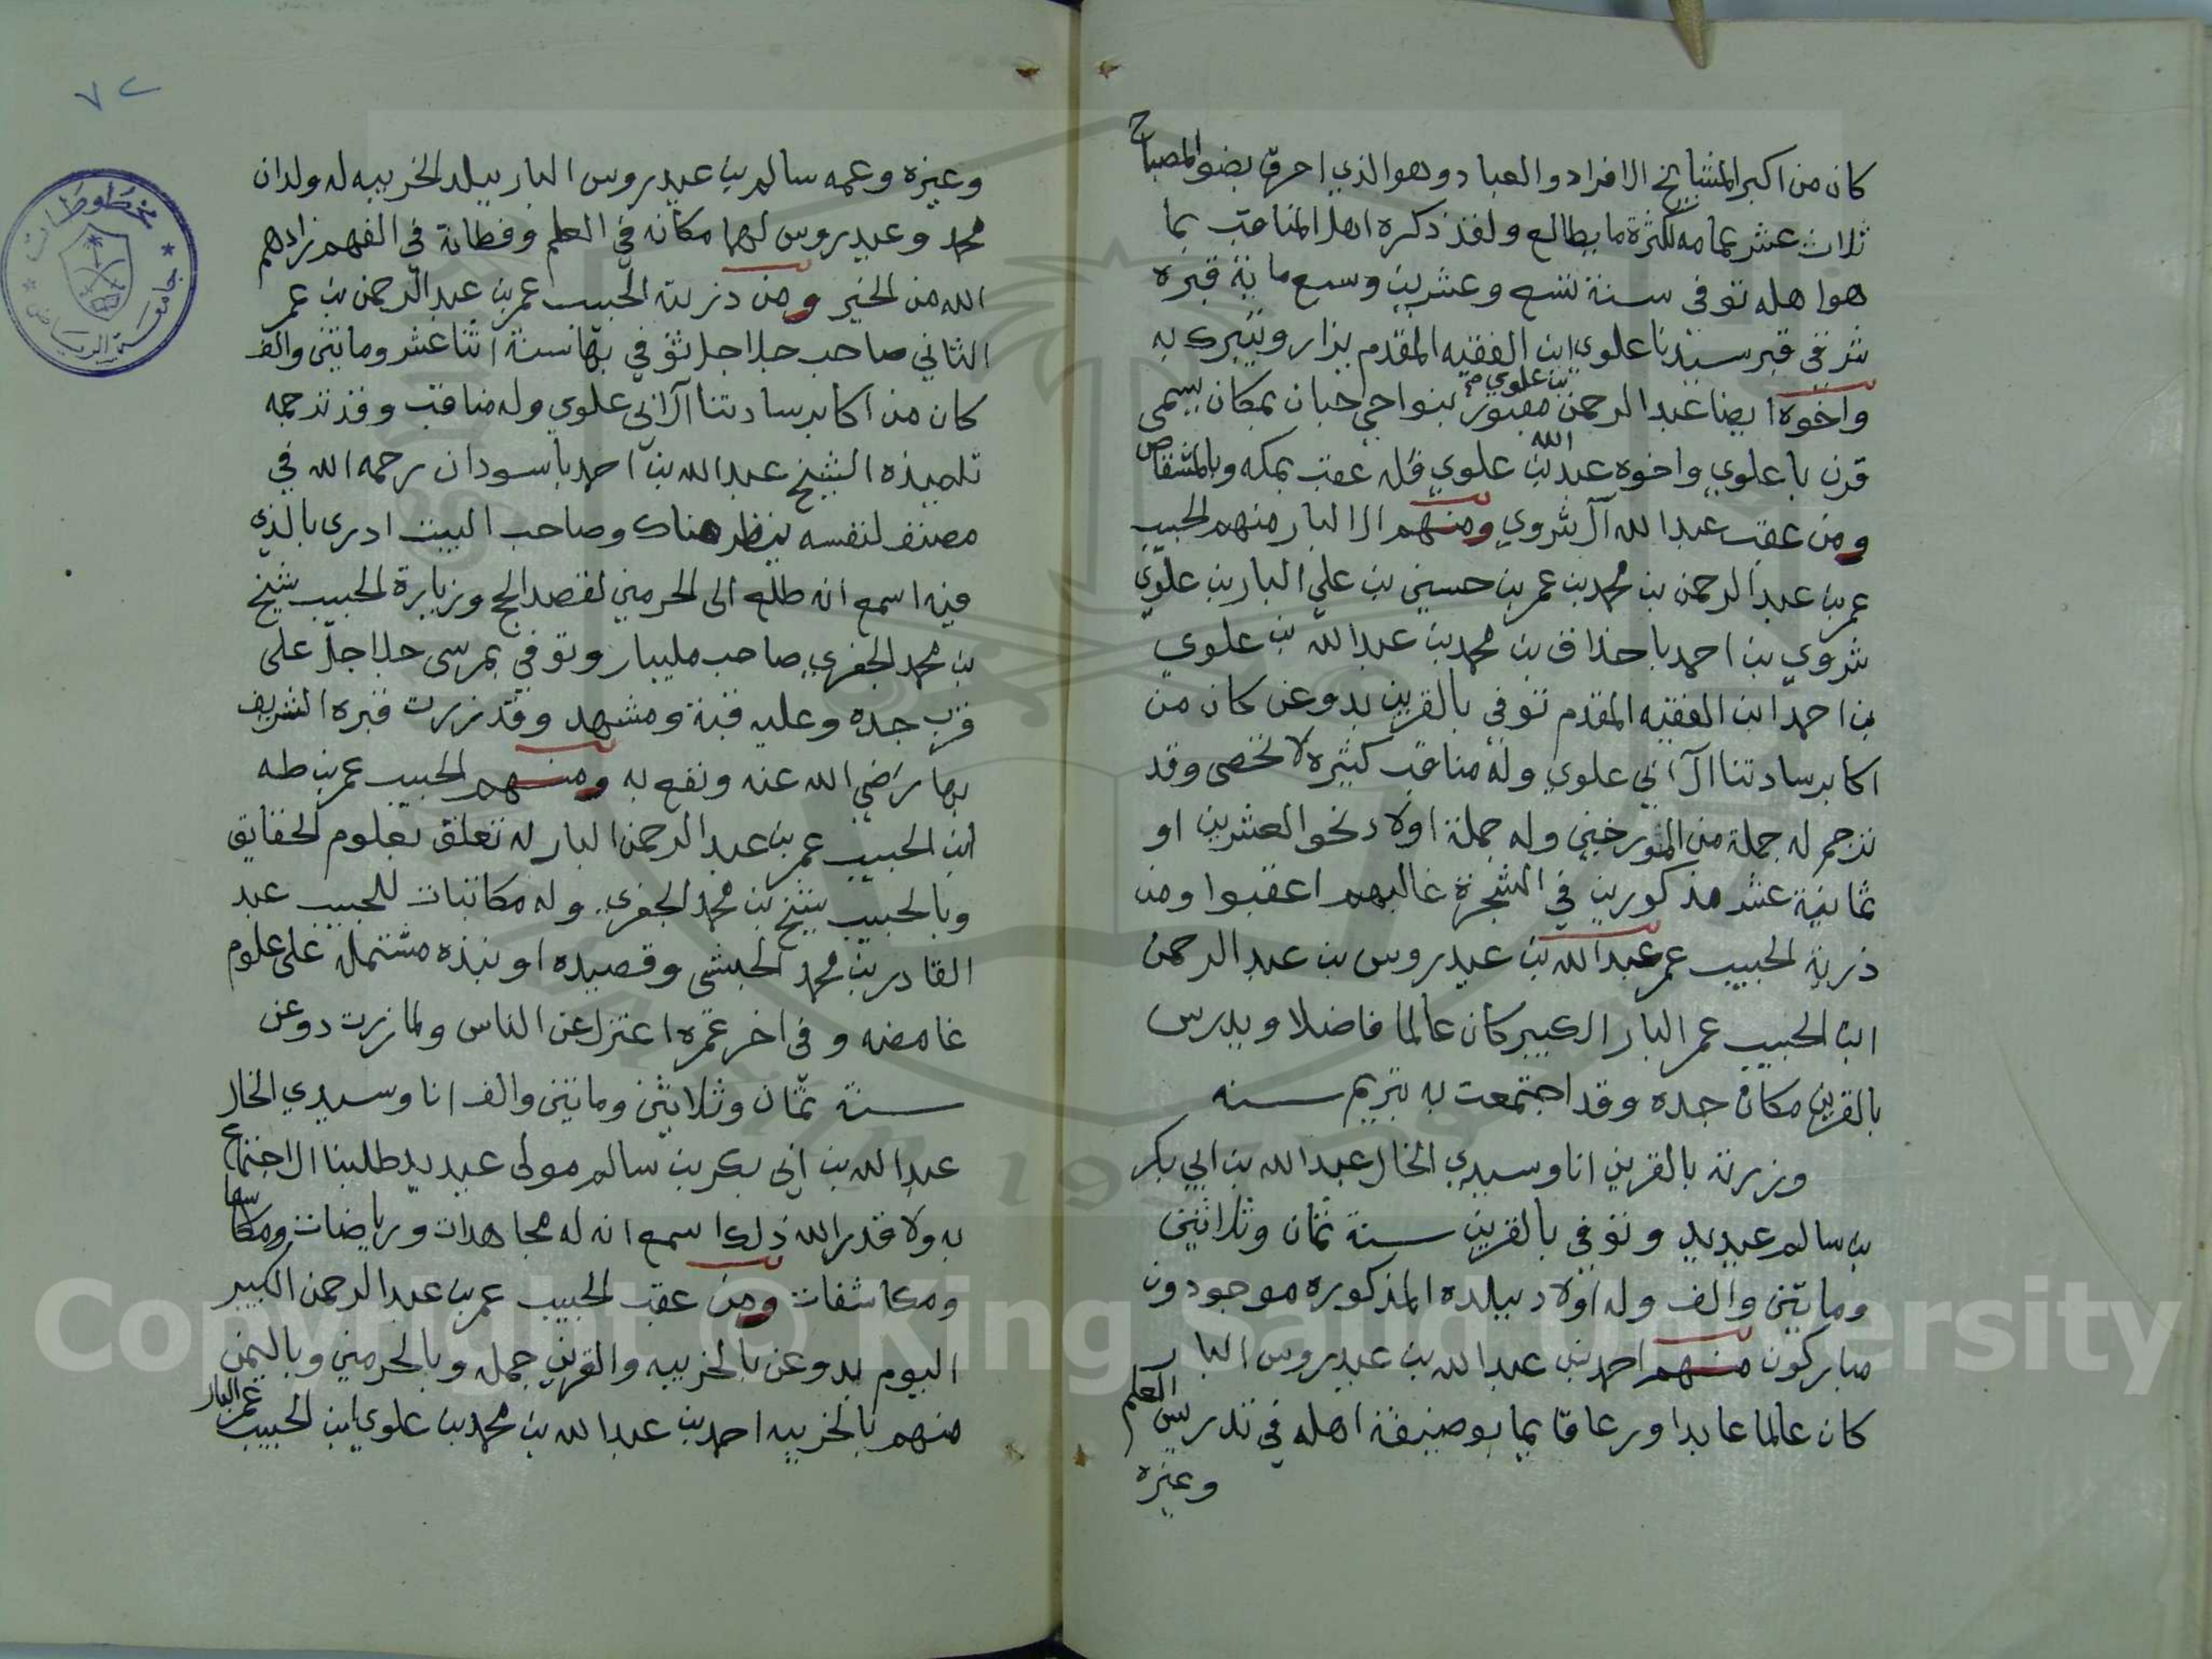 كان من اكبر المشايخ الافراد والعباد وهو الذي احرق بضوالمصباح
ثلاث عشر عمامه لكثرة ما يطالع ولقد ذكره اهل المناقب بما
هوا هله توفي سنة تسع وعشرين وسبع ماية قبره
شرقي قبر سيدنا علوي ابن الفقيه المقدم يزار ويتبرك به
واخوه ايضا عبد الرحمن بن علوي مقبور بنواحي حبان بمكان يسمى
قرن با علوي واخوه عبد الله بن علوي فله عقب بمكه وبالمشقاص
ومن عقب عبد الله آل شروي ومنهم ال البار منهم الحبيب
عمر بن عبد الرحمن بن محمد بن عمر بن حسين بن علي البار بن علوي
شروي بن احمد با حذاق بن محمد بن عبد الله بن علوي
بن احمد ابن الفقيه المقدم توفي بالقرين بدوعن كان من
اكابر سادتنا آل ابي علوي وله مناقب كثيره لا تحصى وقد
ترجم له جملة من المورخين وله جملة اولاد نحو العشرين او
ثمانية عشر مذكورين في الشجرة غالبهم اعقبوا ومن
ذرية الحبيب عمر عبد الله بن عيدروس بن عبد الرحمن
ابن الحبيب عمر البار الكبير كان عالما فاضلا ويدرس
بالقرين مكان جده وقد اجتمعت به بتريم سنه
وزرته بالقرين انا وسيدي الخال عبد الله بن ابي بكر
بن سالم عيديد وتوفي بالقرين سنة ثمان وثلاثين
ومايتين والف وله اولاد ببلده المذكوره موجودون
مباركون منهم احمد بن عبد الله بن عيدروس البار
كان عالما عابدا ورعا قايما بوضيفة اهله في تدريس العلم
وغيره
٧٢
وغيره وعمه سالم بن عيدروس البار ببلد الخريبه له ولدان
محمد وعيدروس لهما مكانه في العلم وفطانة في الفهم زادهم
الله من الخير ومن ذرية الحبيب عمر بن عبد الرحمن بن عمر
الثاني صاحب جلاجل توفي بها سنة اثنا عشر ومايتين والف
كان من اكابر سادتنا آل ابي علوي وله مناقب وقد ترجمه
تلميذه الشيخ عبد الله بن احمد باسودان رحمه الله في
مصنف لنفسه ينظر هناك وصاحب البيت ادرى بالذي
فيه اسمع انه طلع الى الحرمين لقصد الحج وزيارة الحبيب شيخ
بن محمد الجفري صاحب مليبار وتوفي بمرسى جلاجل على
قرب جده وعليه قبة ومشهد وقد زرت قبره الشريف
بها رضي الله عنه ونفع به ومنهم الحبيب عمر بن طه
ابن الحبيب عمر بن عبد الرحمن البار له تعلق بعلوم الحقايق
وبالحبيب شيخ بن محمد الجفري وله مكاتبات للحبيب عبد
القادر بن محمد الحبشي وقصيده او نبذه مشتمله على علوم
غامضه وفي اخر عمره اعتزل عن الناس ولما زرت دوعن
سنة ثمان وثلاثين ومايتين والف انا وسيدي الخال
عبد الله بن ابي بكر بن سالم مولى عيديد طلبنا الاجتماع
به ولا قدر الله ذلك اسمع انه له مجاهدات ورياضات
ومكاشفات ومن عقب الحبيب عمر بن عبد الرحمن الكبير
اليوم بدوعن بالخريبه والقرين جمله وبالحرمين وباليمن
منهم بالخريبه احمد بن عبد الله بن محمد بن علوي ابن الحبيب عمر البار
مخطوطات
جامعة الرياض
Copyright © King Saud University